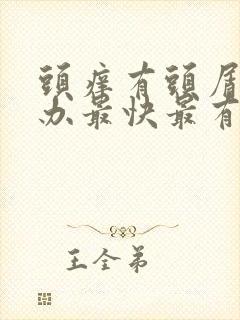 頭癢有頭屑
办最快最有
王全弟